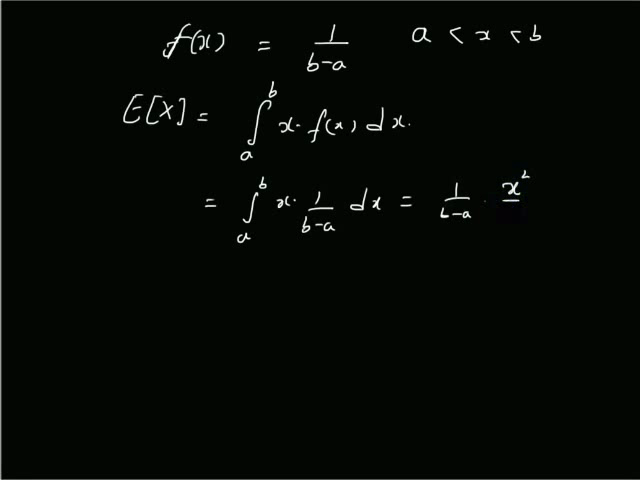 f(x) = 1/(b-a) a < x < b
E[X] = ∫_a^b x · f(x) dx.
= ∫_a^b x · 1/(b-a) dx = 1/(b-a) · x²/